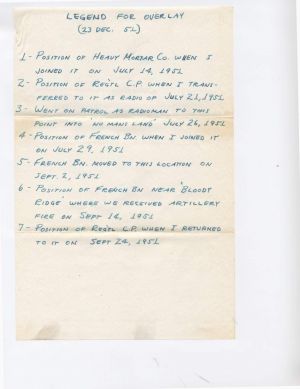 LEGEND FOR OVERLAY
(23 DEC. 51)
1- POSITION OF HEAVY MORTAR CO. WHEN I
JOINED IT ON JULY 14, 1951
2- POSITION OF REG'TL C.P. WHEN I TRANS-
FERRED TO IT AS RADIO OP JULY 21, 1951
3- WENT ON PATROL AS RADIOMAN TO THIS
POINT INTO 'NO MANS LAND' JULY 26, 1951
4- POSITION OF FRENCH BN. WHEN I JOINED IT
ON JULY 29, 1951
5- FRENCH BN. MOVED TO THIS LOCATION ON
SEPT. 2, 1951
6- POSITION OF FRENCH BN NEAR 'BLOODY
RIDGE' WHERE WE RECEIVED ARTILLERY
FIRE ON SEPT 16, 1951
7- POSITION OF REG'TL C.P. WHEN I RETURNED
TO IT ON SEPT 24, 1951